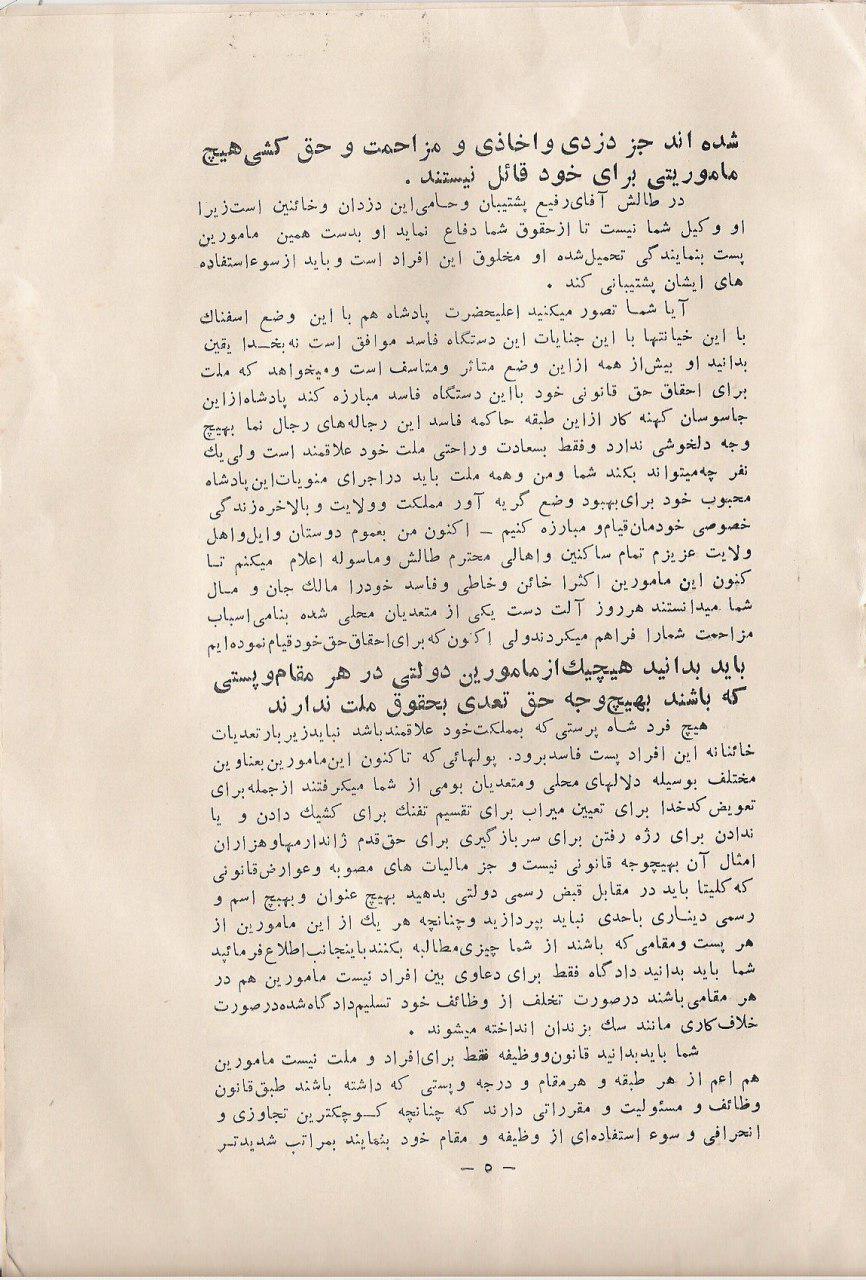 شده اند جز دزدی و اخاذی و مزاحمت و حق کشی هیچ
ماموریتی برای خود قائل نیستند .
در طالش آقای رفیع پشتیبان و حامی این دزدان و خائنین است زیرا
او وکیل شما نیست تا از حقوق شما دفاع نماید او بدست همین مامورین
پست بنمایندگی تحمیل شده او مخلوق این افراد است و باید از سوء استفاده
های ایشان پشتیبانی کند .
آیا شما تصور میکنید اعلیحضرت پادشاه هم با این وضع اسفناك
با این خیانتها با این جنایات این دستگاه فاسد موافق است نه بخدا یقین
بدانید او بیش از همه از این وضع متاثر و متاسف است و میخواهد که ملت
برای احقاق حق قانونی خود با این دستگاه فاسد مبارزه کند پادشاه از این
جاسوسان کهنه کار از این طبقه حاکمه فاسد این رجاله های رجال نما بهیچ
وجه دلخوشی ندارد و فقط بسعادت و راحتی ملت خود علاقمند است ولی یك
نفر چه میتواند بکند شما و من و همه ملت باید در اجرای منویات این پادشاه
محبوب خود برای بهبود وضع گریه آور مملکت و ولایت و بالاخره زندگی
خصوصی خودمان قیام و مبارزه کنیم ـ اکنون من بعموم دوستان و ایل و اهل
ولایت عزیزم تمام ساکنین و اهالی محترم طالش و ماسوله اعلام میکنم تا
کنون این مامورین اکثرا خائن و خاطی و فاسد خود را مالك جان و مال
شما میدانستند هر روز آلت دست یکی از متعدیان محلی شده بنامی اسباب
مزاحمت شما را فراهم میکردند ولی اکنون که برای احقاق حق خود قیام نموده ایم
باید بدانید هیچیك از مامورین دولتی در هر مقام و پستی
که باشند بهیچوجه حق تعدی بحقوق ملت ندارند
هیچ فرد شاه پرستی که بمملکت خود علاقمند باشد نباید زیر بار تعدیات
خائنانه این افراد پست فاسد برود. پولهائی که تا کنون این مامورین بعناوین
مختلف بوسیله دلالهای محلی و متعدیان بومی از شما میگرفتند از جمله برای
تعویض کدخدا برای تعیین میراب برای تقسیم تفنك برای کشیك دادن و یا
ندادن برای رژه رفتن برای سربازگیری برای حق قدم ژاندارمها و هزاران
امثال آن بهیچوجه قانونی نیست و جز مالیات های مصوبه و عوارض قانونی
که کلیتا باید در مقابل قبض رسمی دولتی بدهید بهیچ عنوان و بهیچ اسم و
رسمی دیناری باحدی نباید بپردازید و چنانچه هر یك از این مامورین از
هر پست و مقامی که باشند از شما چیزی مطالبه بکنند باینجانب اطلاع فرمائید
شما باید بدانید دادگاه فقط برای دعاوی بین افراد نیست مامورین هم در
هر مقامی باشند در صورت تخلف از وظائف خود تسلیم دادگاه شده در صورت
خلاف کاری مانند سك بزندان انداخته میشوند .
شما باید بدانید قانون و وظیفه فقط برای افراد و ملت نیست مامورین
هم اعم از هر طبقه و هر مقام و درجه و پستی که داشته باشند طبق قانون
وظائف و مسئولیت و مقرراتی دارند که چنانچه کوچکترین تجاوزی و
انحرافی و سوء استفاده‌ای از وظیفه و مقام خود بنمایند بمراتب شدیدتر
ـ ۵ ـ